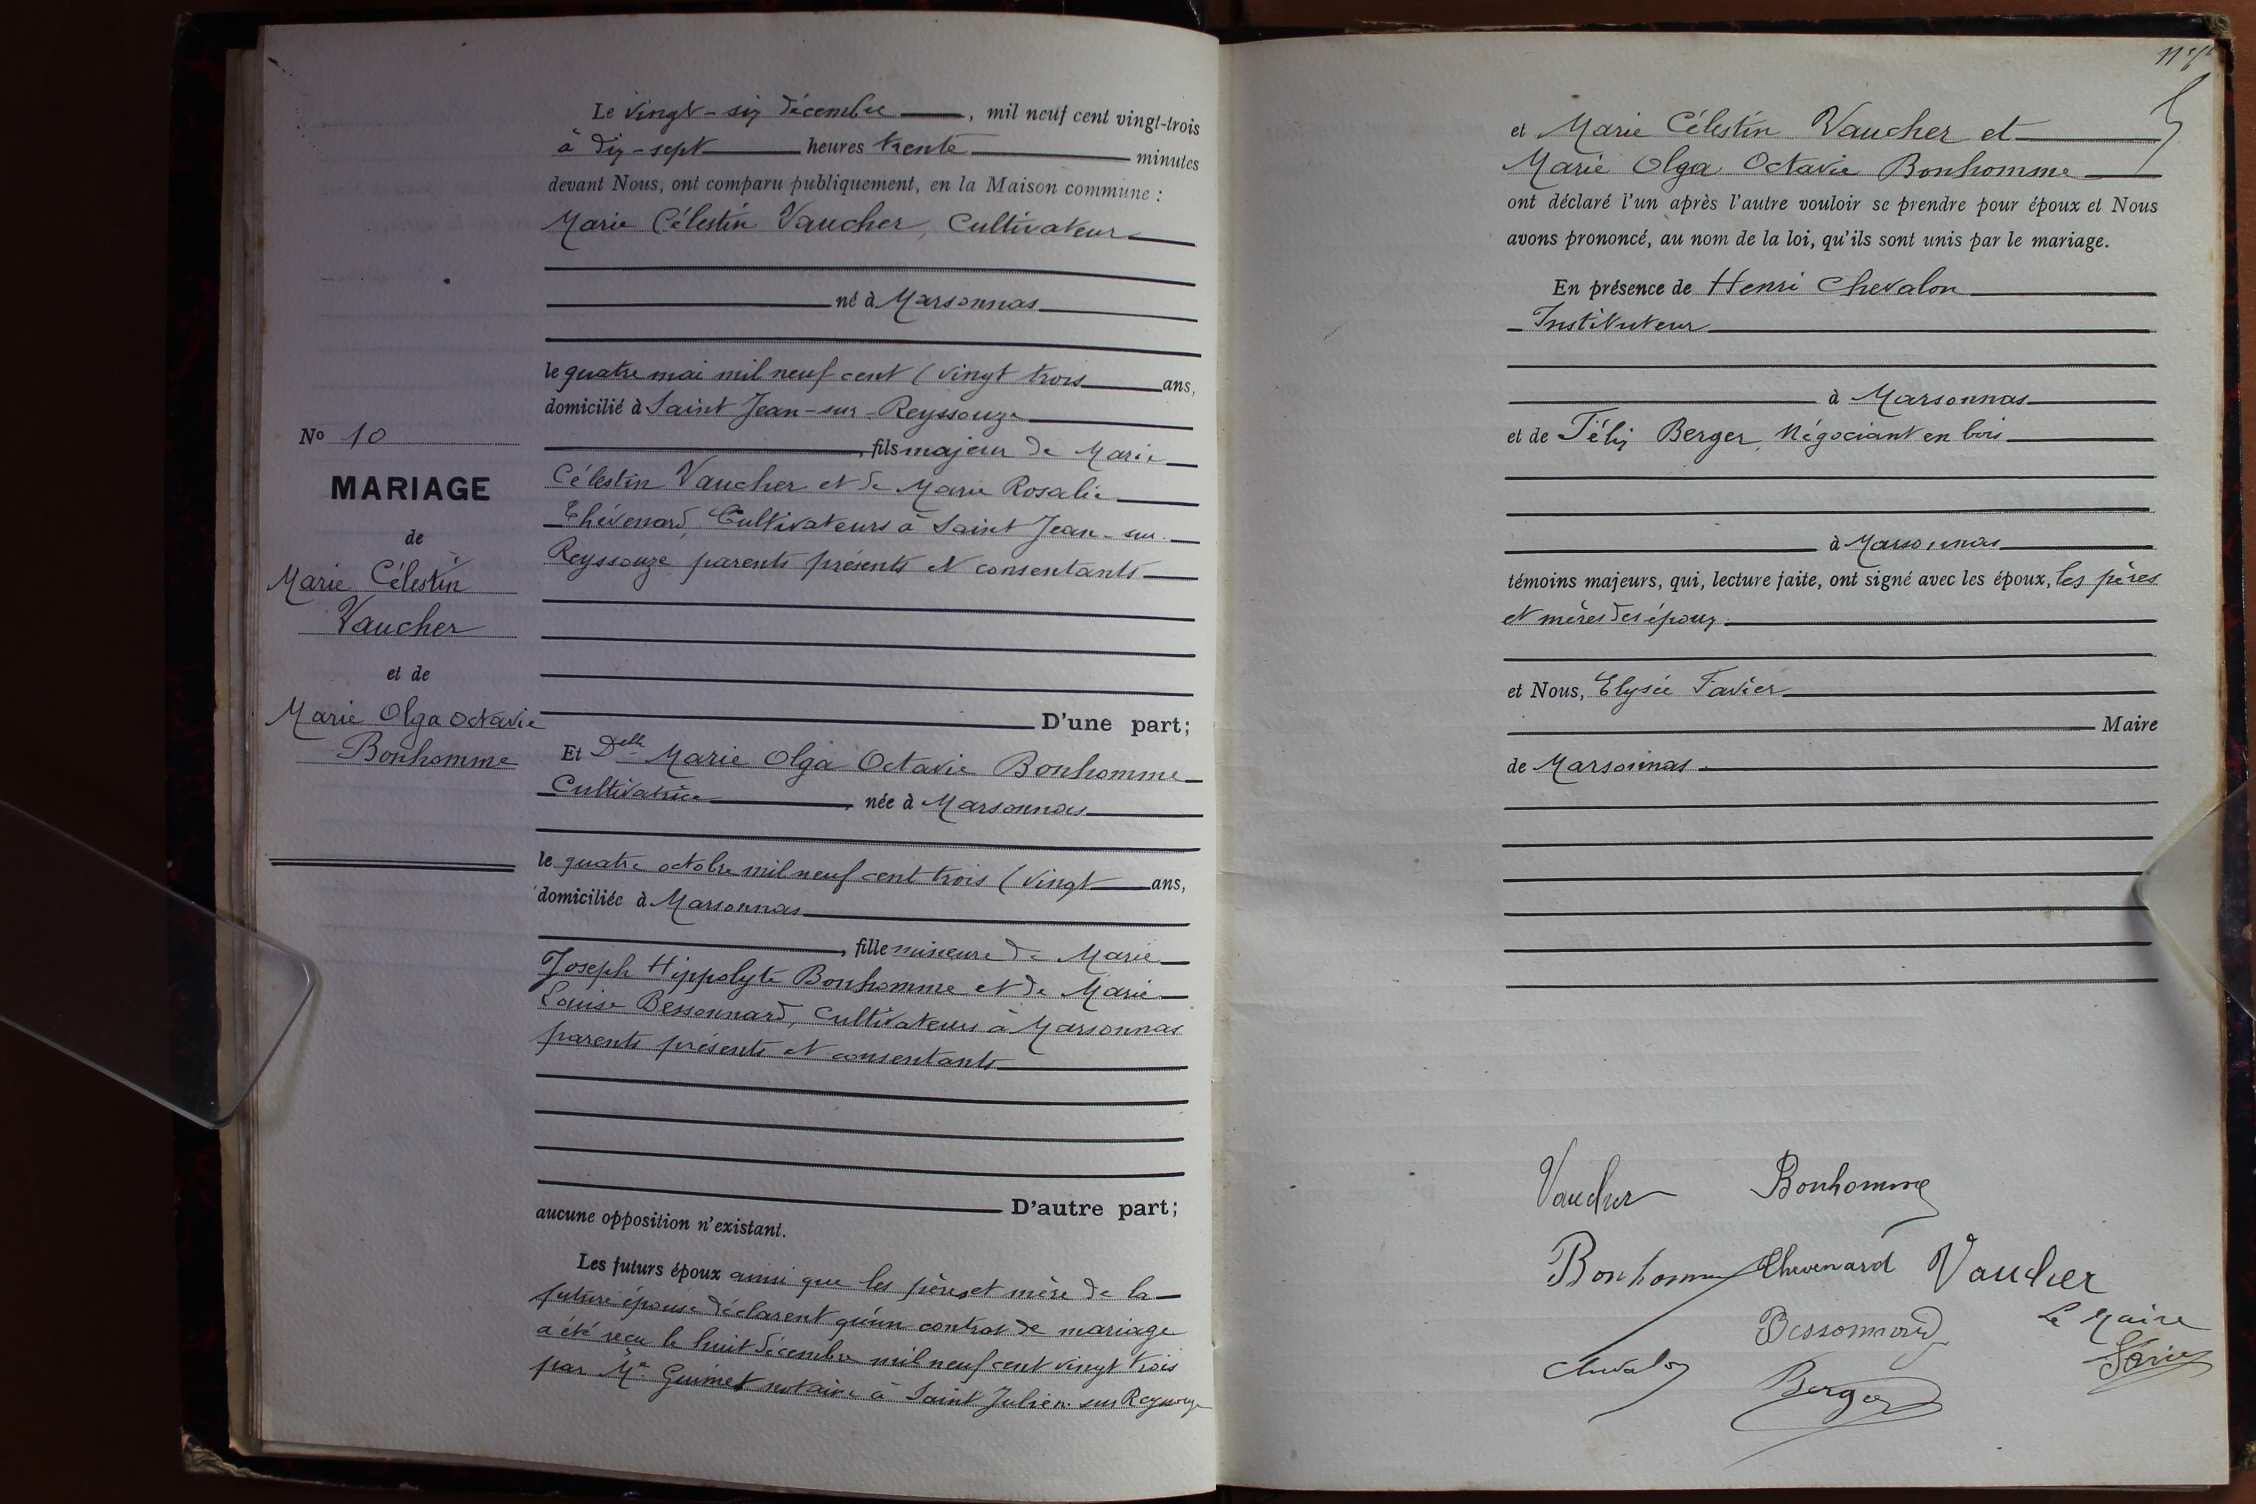 Le vingt-six décembre, mil neuf cent vingt-trois
à dix-sept heures trente minutes
devant Nous, ont comparu publiquement, en la Maison commune :
Marie Célestin Vaucher, Cultivateur
né à Marsonnas
le quatre mai mil neuf cent (vingt trois ans,
domicilié à Saint Jean-sur-Reyssouze
, fils majeur de Marie
Célestin Vaucher et de Marie Rosalie
Thévenard, Cultivateurs à Saint Jean-sur-
Reyssouze parents présents et consentants
D'une part;
No 10
MARIAGE
de
Marie Célestin
Vaucher
et de
Marie Olga Octavie
Bonhomme
Et Delle Marie Olga Octavie Bonhomme
Cultivatrice, née à Marsonnas
le quatre octobre mil neuf cent trois (vingt ans,
domiciliée à Marsonnas
, fille mineure de Marie
Joseph Hippolyte Bonhomme et de Marie
Louise Bessonnard, Cultivateurs à Marsonnas
parents présents et consentants
D'autre part;
aucune opposition n'existant.
Les futurs époux ainsi que les pères et mère de la
future épouse déclarent qu'un contrat de mariage
a été reçu le huit décembre mil neuf cent vingt trois
par Me Guimet notaire à Saint Julien sur Reyssouze
et Marie Célestin Vaucher et
Marie Olga Octavie Bonhomme
ont déclaré l'un après l'autre vouloir se prendre pour époux et Nous
avons prononcé, au nom de la loi, qu'ils sont unis par le mariage.
En présence de Henri Chevalon
Instituteur
à Marsonnas
et de Félix Berger, Négociant en bois
à Marsonnas
témoins majeurs, qui, lecture faite, ont signé avec les époux, les pères
et mères des époux
et Nous, Elysée Favier
Maire
de Marsonnas
Vaucher Bonhomme
Bonhomme Thevenard Vaucher
Bessonnard Le Maire
Chevalon Berger